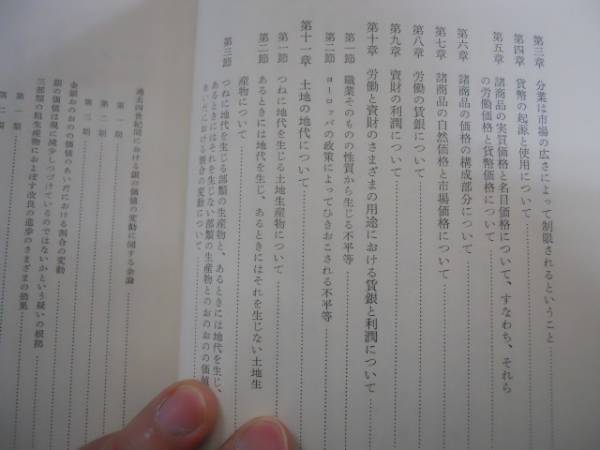 第三章 分業は市場の広さによって制限されるということ
第四章 貨幣の起源と使用について
第五章 諸商品の実質価格と名目価格について、すなわち、それら
の労働価格と貨幣価格について
第六章 諸商品の価格の構成部分について
第七章 諸商品の自然価格と市場価格について
第八章 労働の賃銀について
第九章 資財の利潤について
第十章 労働と資財のさまざまの用途における賃銀と利潤について
第一節 職業そのものの性質から生じる不平等
第二節 ヨーロッパの政策によってひきおこされる不平等
第十一章 土地の地代について
第一節 つねに地代を生じる土地生産物について
第二節 あるときには地代を生じ、あるときにはそれを生じない土地生
産物について
第三節 つねに地代を生じる部類の生産物と、あるときには地代を生じ、
あるときにはそれを生じない部類の生産物とのおのおのの価値
のあいだにおける割合の変動について
過去四世紀間における銀の価値の変動に関する余論
第一期
第二期
第三期
金銀おのおのの価値のあいだにおける割合の変動
銀の価値は現に減少しつづけているのではないかという疑いの根拠
三部類の粗生産物におよぼす改良の進歩のさまざまの効果
第一類
第二類